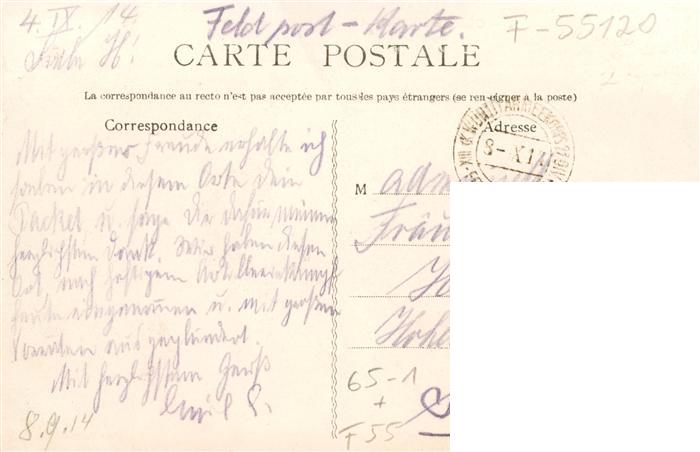 4. IX. 14.
Feldpost-Karte.
F-55120
Liebe H!
CARTE POSTALE
La correspondance au recto n'est pas acceptée par tous les pays étrangers (se renseigner à la poste)
Correspondance
Adresse
8-X1
Mit großer Freude erhielte ich
soeben in diesem Orte Dein
Packet u. sage Dir dafür meinen
herzlichsten Dank. Wir haben diesen
Ort nach heftigem Artilleriekampf
heute eingenommen u. mit großen
ausgeplündert.
Mit herzlichstem Gruß
Emil
M
Fräu
Hohe
65-1
+
F 55
8.9.14